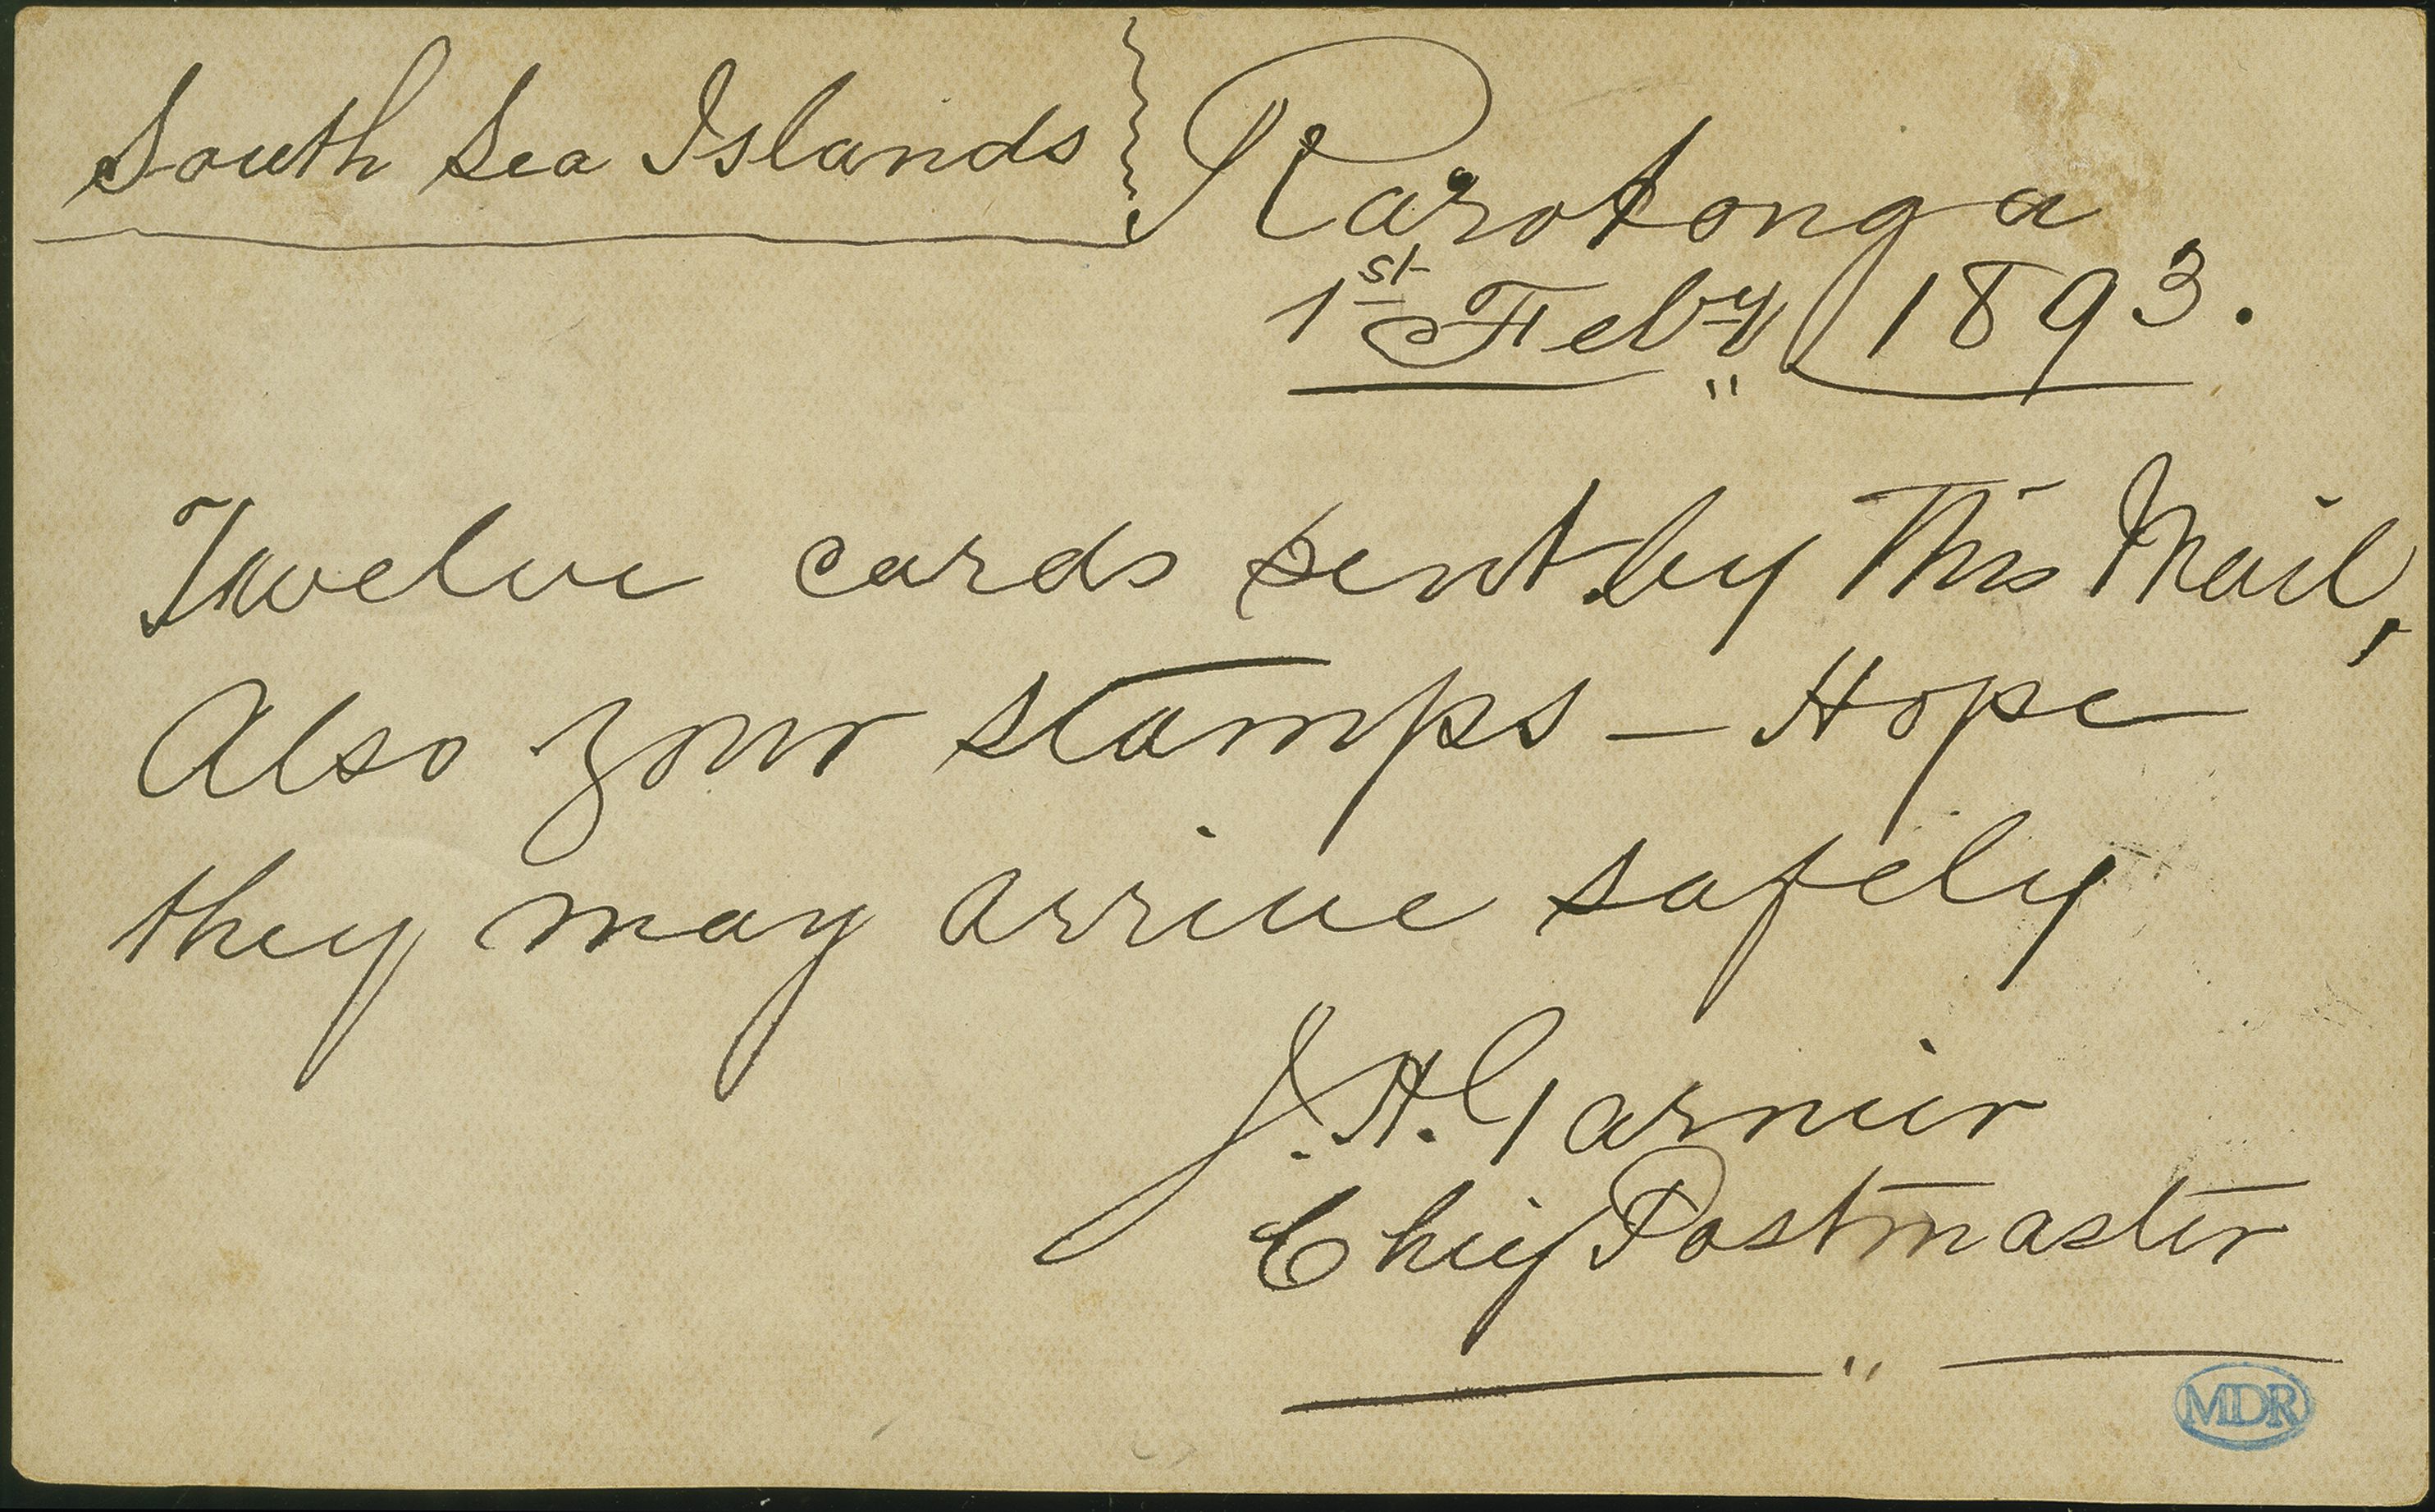 South Sea Islands
Rarotonga
1st Feby 1893.
Twelve cards sent by This Mail,
Also your stamps — Hope
they may arrive safely
J. H. Garnier
Chief Postmaster
MDR